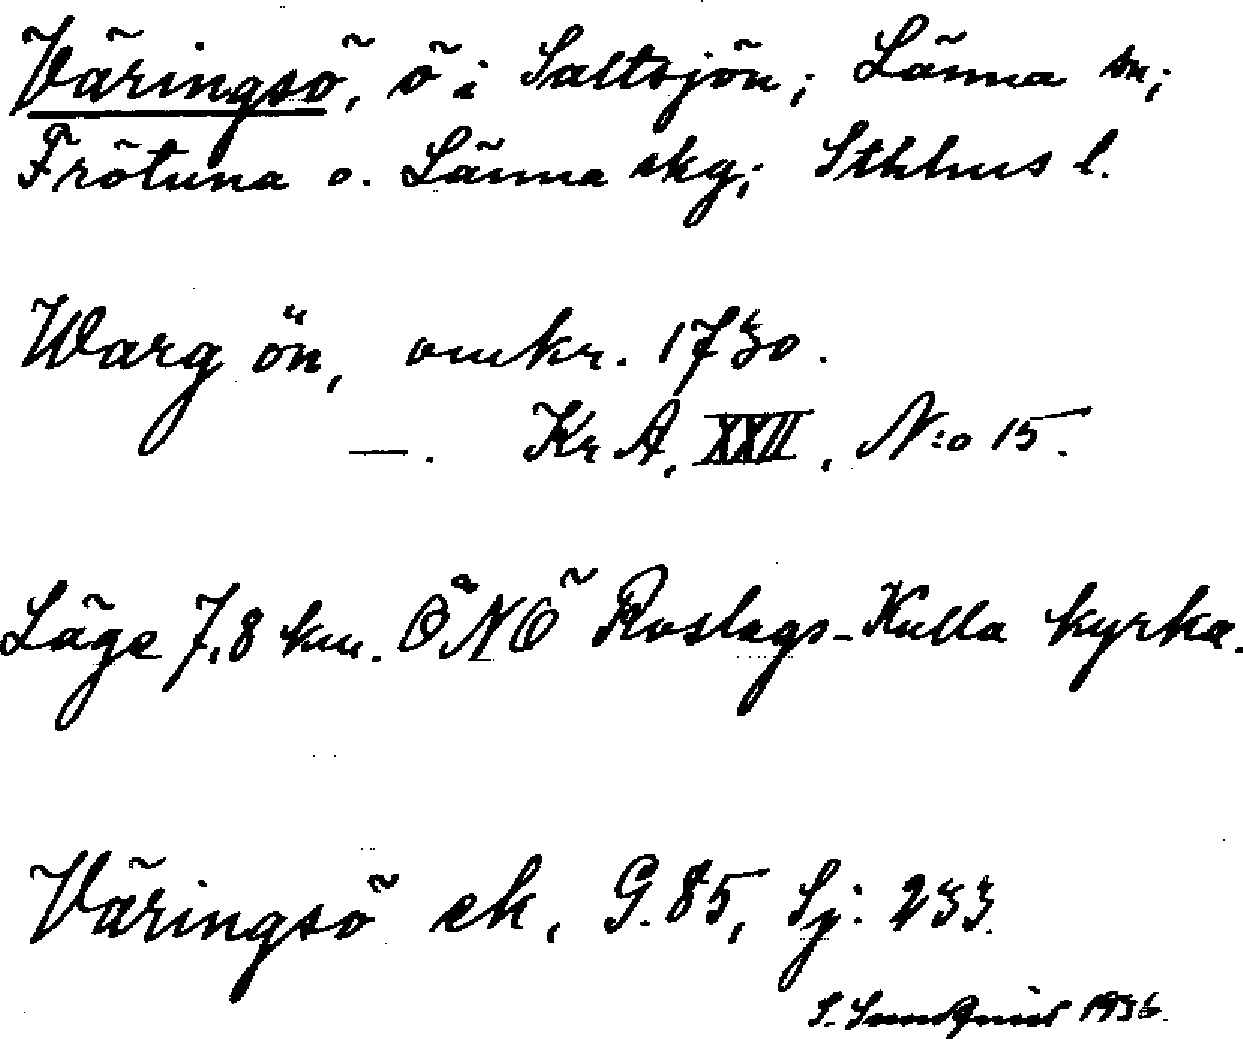 Väringsö, ö i Saltsjön; Länna sn;
Frötuna o. Länna skg; Sthlms l.
Warg ön, omkr. 1730.
—. Kr A, XXII, N:o 15.
Läge 7,8 km. ÖNÖ Roslags-Kulla kyrka.
Väringsö ek, G. 85, Sj: 233.
S. 1936.